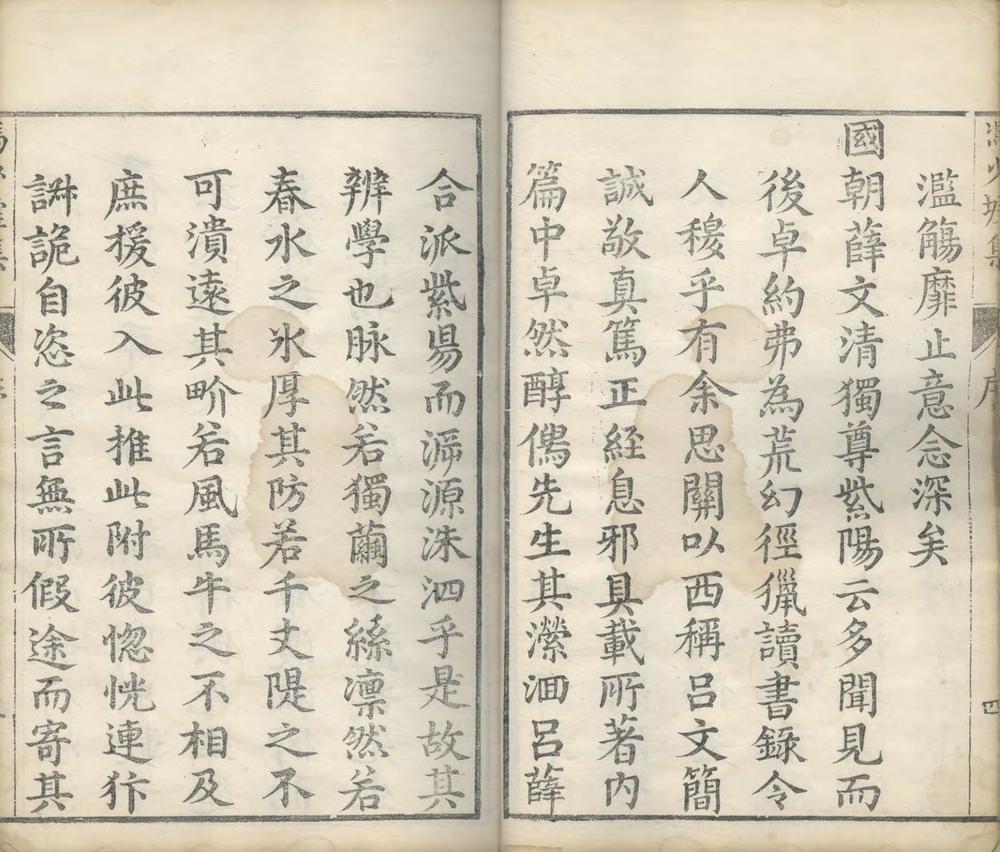 濫觴靡止意念深矣
國朝薛文清獨尊紫陽云多聞見而
後卓約弗為荒幻徑獵讀書錄令
人穆乎有余思關以西稱呂文簡
誠敬真篤正經息邪具載所著內
篇中卓然醇儒先生其瀠洄呂薛
合派紫昜而泝源洙泗乎是故其
辨學也脉然若獨繭之絲凛然若
春水之氷厚其防若千丈隄之不
可潰遠其畍若風馬牛之不相及
庶援彼入此推此附彼惚恍連犿
諔詭自恣之言無所假途而寄其
序
四